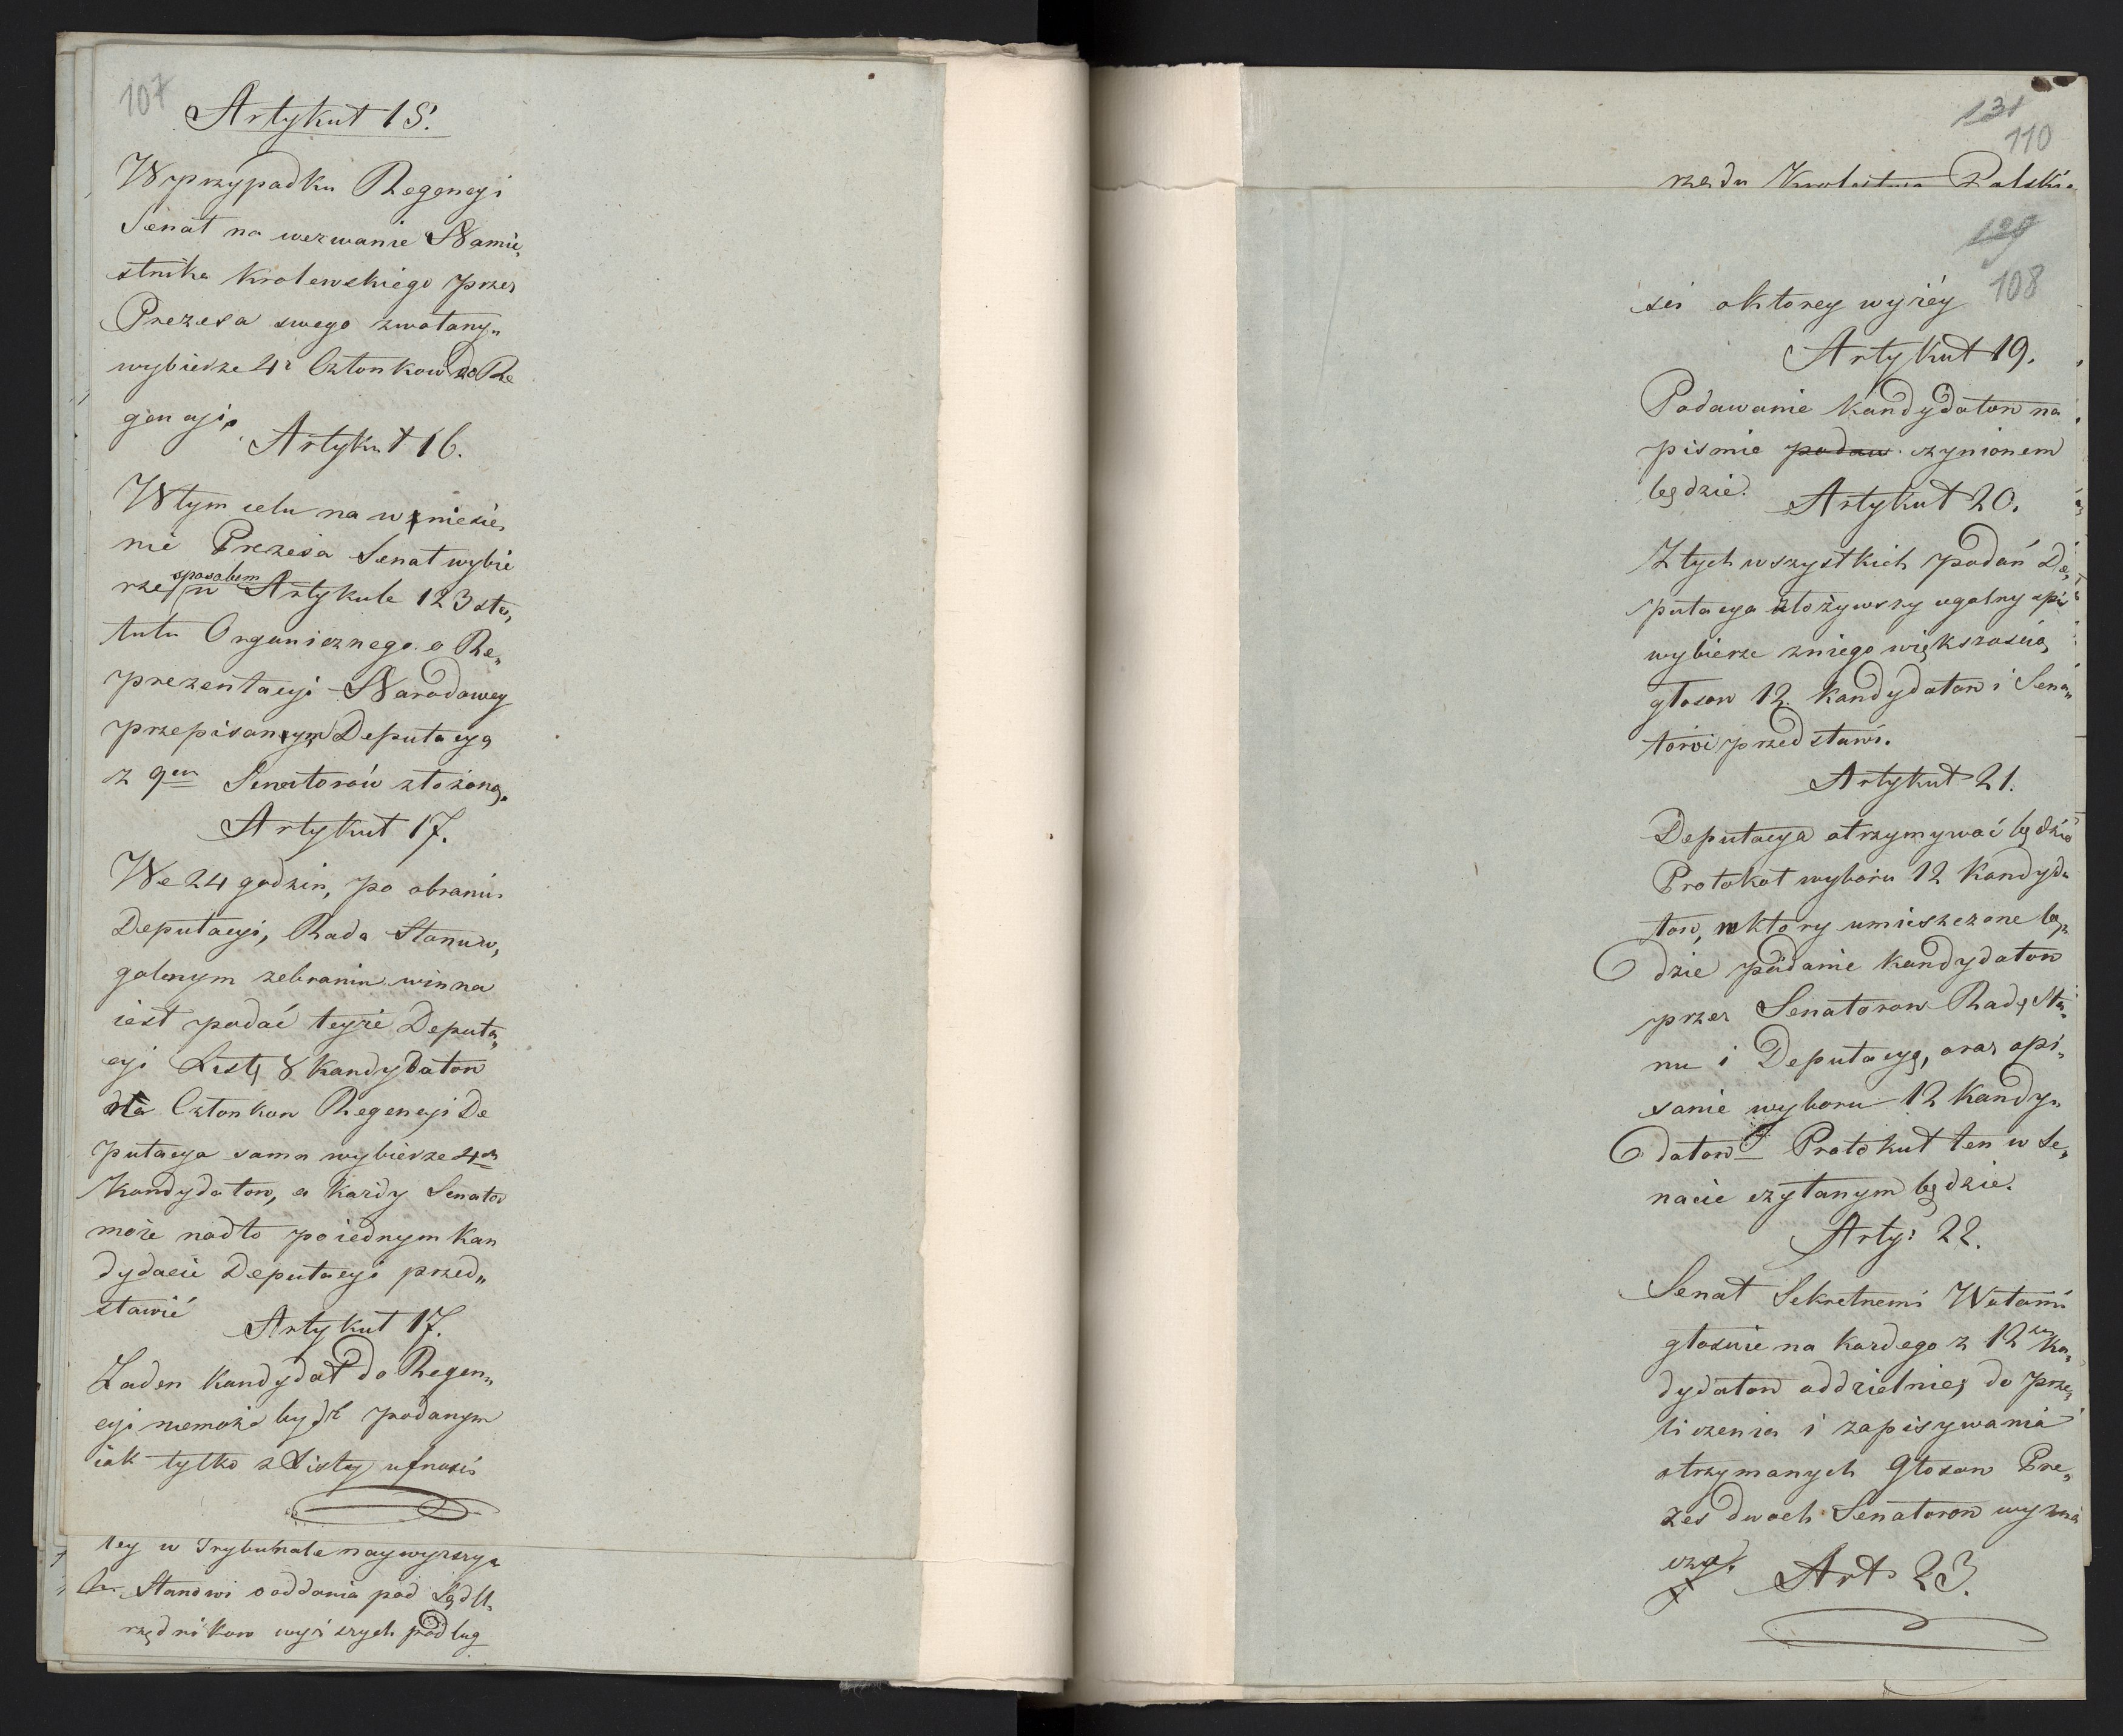 107
Artykuł 15.
W przypadku Regencyi
Senat na wezwanie Namie„
stnika Krolewskiego przez
Prezesa swego zwołany„
wybierze 4r Członkow do Re
gencyi.
Artykuł 16.
W tym celu na wzniesie„
nie Prezesa Senat wybie
rze sposobem w Artykule 123 sta„
tutu Organicznego o Re„
prezentacyi Narodowey
przepisanym Deputacyą
z 9ciu Senatorów złożoną.
Artykuł 17.
We 24 godzin, po obraniu
Deputacyi, Rada Stanu w„
golnym zebraniu winna
iest podać teyże Deputa„
cyi Listę 8 kandydatow
dla Członkow Regencyi De
putacya sama wybierze 4ch
Kandydatow, a każdy Senator
może nadto po iednym kan
dydacie Deputacyi przed„
stawić
Artykuł 17.
Żaden kandydat do Regen„
cyi niemoże bydź podanym
iak tylko z Listy ufności
tey w Trybunale naywyższy
Stanowi o oddania pod Sąd U„
rzędnikow wyższych podług
131
110
rzędu Krolestwa Polskie
129
108
sci o ktorey wyżéy
Artykuł 19.
Podawanie kandydatow na
pismie podaw czynionem
będzie.
Artykuł 20.
Z tych wszystkich podań De„
putacya złożywszy ogolny spis
wybierze zniego większością
głosow 12. kandydatow i Sena„
towi przedstawi.
Artykuł 21.
Deputacya otrzymywać będzie
Protokoł wyboru 12 Kandyda
tow, w ktory umieszczone bę„
dzie podanie kandydatow
przez Senatorow Radę Sta„
nu i Deputacyą, oraz opi„
sanie wyboru 12 Kandy„
datow Protokuł ten w Se„
nacie czytanym będzie.
Arty: 22.
Senat Sekretnemi Wotami
głosuie na kazdego z 12stu Kan„
dydatow oddzielnie, do prze„
liczenia i zapisywania
otrzymanych Głosow Pre„
zes dwoch Senatorow wyzna
czy.
Art. 23.